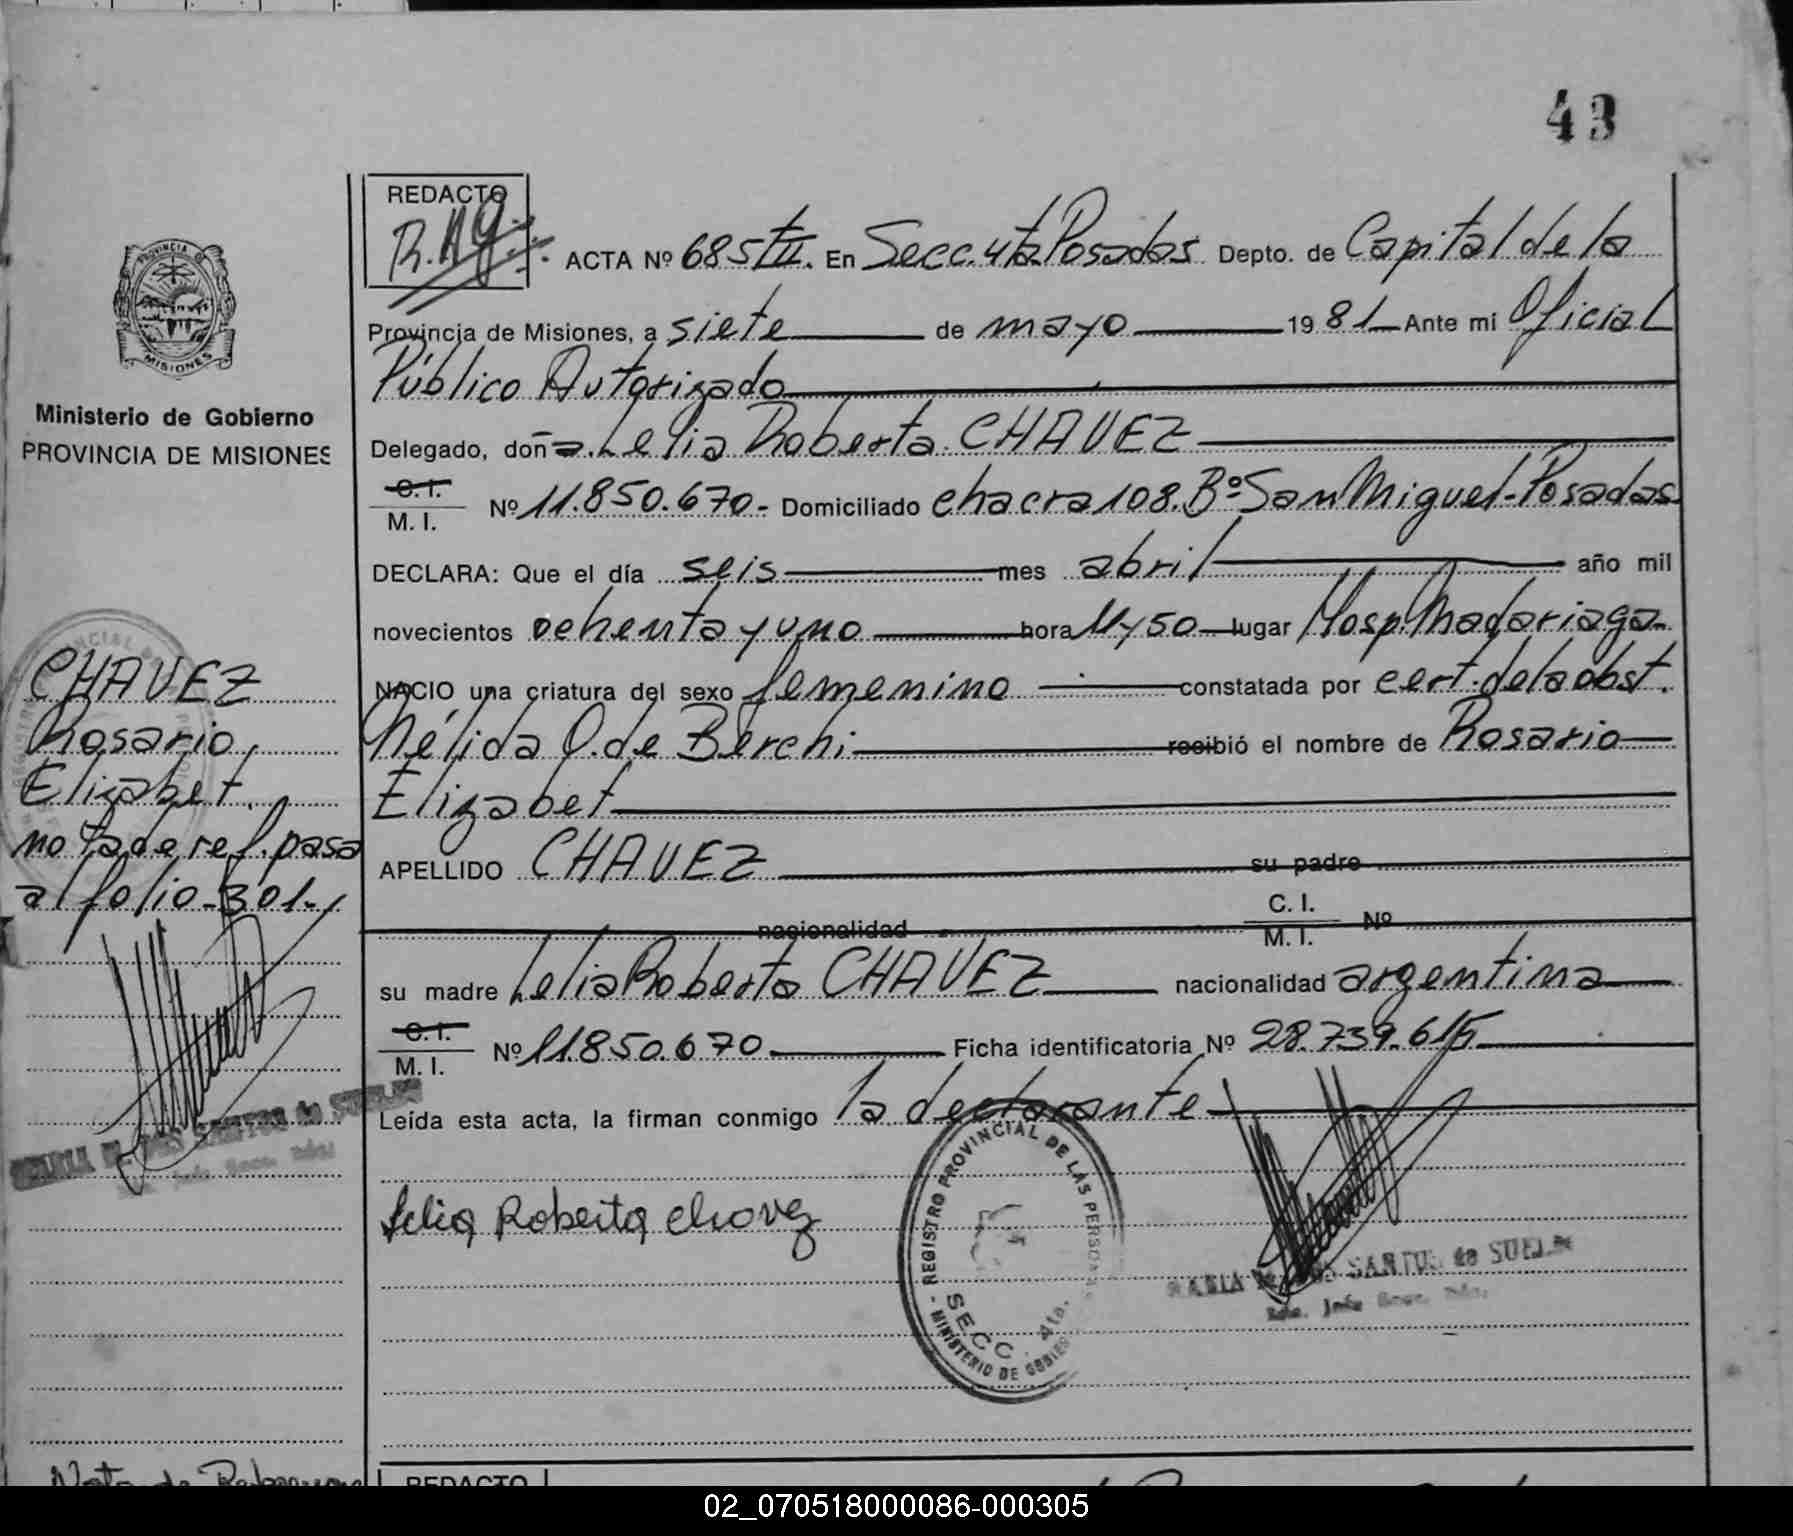 43
REDACTO
ACTA Nº 685 TII. En Secc. 4ta Posadas Depto. de Capital de la
Provincia de Misiones, a siete de mayo 1981 Ante mi Oficial
Público Autorizado
Delegado, doña Lelia Roberta CHAVEZ
C. I.
M. I. Nº 11.850.670.- Domiciliado chacra 108. Bº San Miguel-Posadas
DECLARA: Que el día seis mes abril año mil
novecientos ochenta y uno hora 11 y 50 lugar Hosp. Madariaga
NACIO una criatura del sexo femenino constatada por cert. de la obst.
Nélida Q. de Berchi recibió el nombre de Rosario
Elizabet
APELLIDO CHAVEZ su padre
nacionalidad C. I. M. I. Nº
su madre Lelia Roberta CHAVEZ nacionalidad argentina
C. I.
M. I. Nº 11.850.670 Ficha identificatoria Nº 28.739.615
Leída esta acta, la firman conmigo la declarante
Lelia Roberta Chavez
REGISTRO PROVINCIAL DE LAS PERSONAS
SECC. 4ta.
MINISTERIO DE GOBIERNO
MARIA DE LOS SANTOS de SUELDE
PROVINCIA DE
MISIONES
Ministerio de Gobierno
PROVINCIA DE MISIONES
CHAVEZ
Rosario
Elizabet.
nota de ref. pasa
al folio 301-
SANTOS de
Nota de
REDACTO
02_070518000086-000305